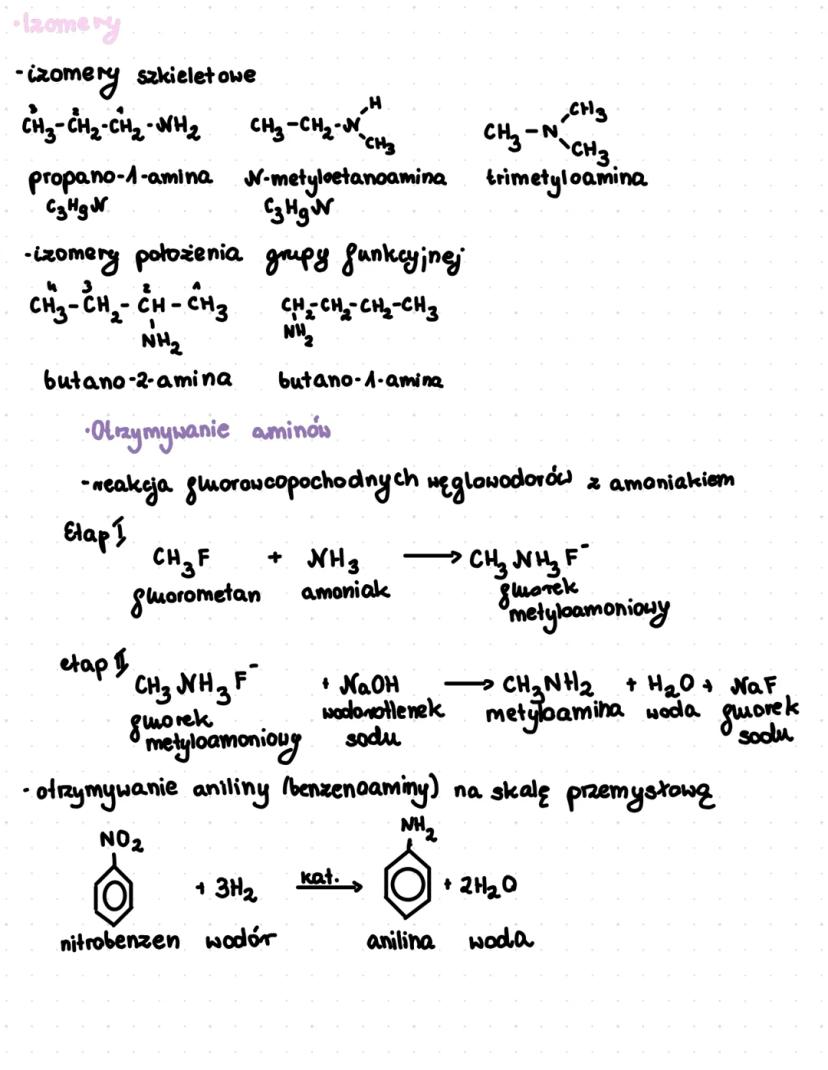 ·Izomery
-izomery szkieletowe
³CH₃-²CH₂-¹CH₂-NH₂ CH₃-CH₂-N-H CH₃ CH₃-N-CH₃ CH₃
propano-1-amina N-metyloetanoamina trimetyloamina
C₃H₉N C₃H₉N
-izomery położenia grupy funkcyjnej
⁴CH₃-³CH₂-²CH-¹CH₃ CH₂-CH₂-CH₂-CH₃
NH₂ NH₂
butano-2-amina butano-1-amina
·Otrzymywanie aminów
-reakcja fluorowcopochodnych węglowodorów z amoniakiem
Etap I
CH₃F + NH₃ ⟶ CH₃NH₃F⁻
fluorometan amoniak fluorek
metyloamoniowy
etap II
CH₃NH₃F⁻ + NaOH ⟶ CH₃NH₂ + H₂O + NaF
fluorek wodorotlenek metyloamina woda fluorek
metyloamoniowy sodu sodu
·otrzymywanie aniliny (benzenoaminy) na skalę przemysłową
NO₂ NH₂
+ 3H₂ kat. ⟶ + 2H₂O
nitrobenzen wodór anilina woda